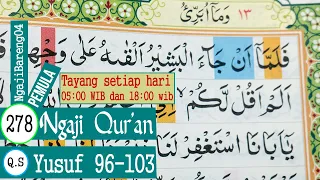 ١٣ وَمَآ اُبَرِّئُ
فَلَمَّآ اَنْ جَآءَ الْبَشِيْرُ اَلْقٰىهُ عَلٰى وَجْهِهٖ
اَلَمْ اَقُلْ لَّكُمْ
يٰٓاَبَانَا اسْتَغْفِرْ لَنَا
NgajiBareng04
PEMULA
Tayang setiap hari
05:00 WIB dan 18:00 wib
278 Ngaji Qur'an
Q.S Yusuf 96-103